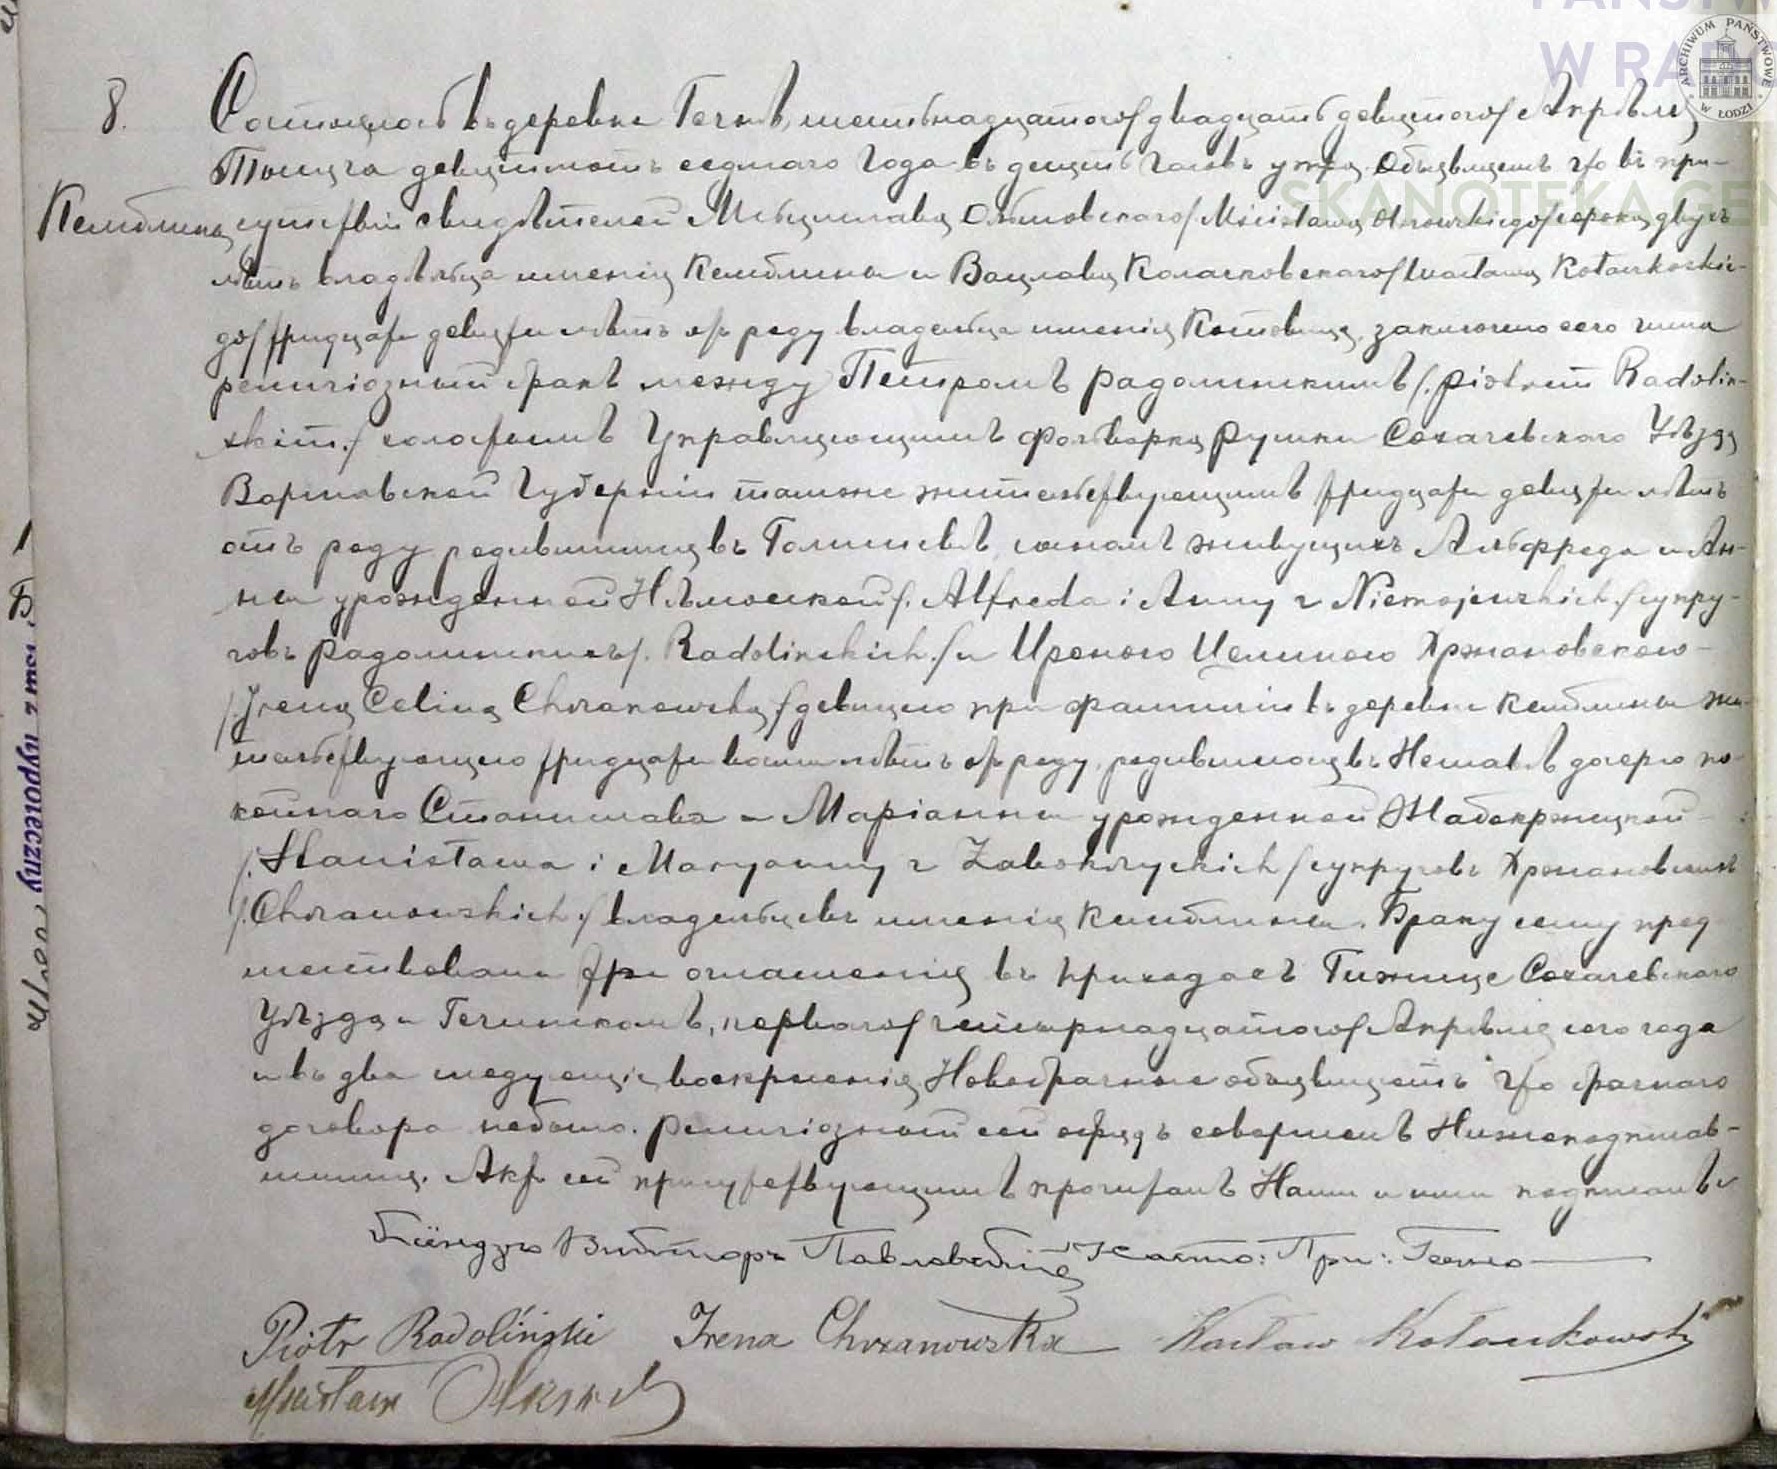 PAŃSTW
W RAD
ARCHIWUM PAŃSTWOWE W ŁODZI
SKANOTEKA GEN
8. Состоялось въ деревне Гечнѣ, шестьнадцатого/двадцать девятого/ Апрѣля
Тысяча девятьсотъ седмаго года въ десять часовъ утра. Объявляемъ что въ при-
Кемблины сутствіи свидѣтелей Мѣчислава /Mścisława сорока двухъ
лѣтъ владѣльца имения Кемблины и Вацлава Колачковского/Wacława Kołaczkoskie-
go/ тридцати девяти лѣтъ отъ роду владельца имения заключено сего числа
религіозный бракъ между Петромъ Радолинскимъ /.Piotrem Radoliń-
skim./ холостымъ Управляющимъ фольварка Рушки Сохачевского Уѣзда
Варшавской Губерніи тамже жительствующимъ тридцати девяти лѣтъ
отъ роду родившимся въ сыномъ живущихъ Альфреда и Ан-
ны урожденной /.Alfreda i Anny z Niemojewskich./ супру-
говъ Радолинскихъ /.Radolińskich./ и Иреною Целиною Хржановскою
/.Ireną Celiną Chrzanowską/ девицею при фамиліи въ деревне Кемблины жи-
тельствующею тридцати восми лѣтъ отъ роду, родившеюся въ дочерю по-
койнаго Станислава и Маріанны урожденной Жабокржицкой
/.Stanisława i Maryanny z Zabokrzyckich/ супруговъ Хржановскихъ
/.Chrzanowskich./ владельцевъ имения Кемблины. Браку сему пред
шествовали три оглашения въ приходахъ Гижице Сохачевского
Уѣзда и Гечинскомъ, первого/четырнадцатого/ Апрѣля сего года
и въ два следующія воскресения Новобрачные объявляютъ что брачнаго
договора небыло. Религіозный сей обрядъ совершенъ Нижеподписав-
шимся. Актъ сей присутствующимъ прочитанъ Нами и ими подписанъ
Ксендзъ Викторъ Павловскій Насто: При: Гечно
Piotr Radoliński Irena Chrzanowska Wacław Kołaczkowski
Mścisław
hypoteczny